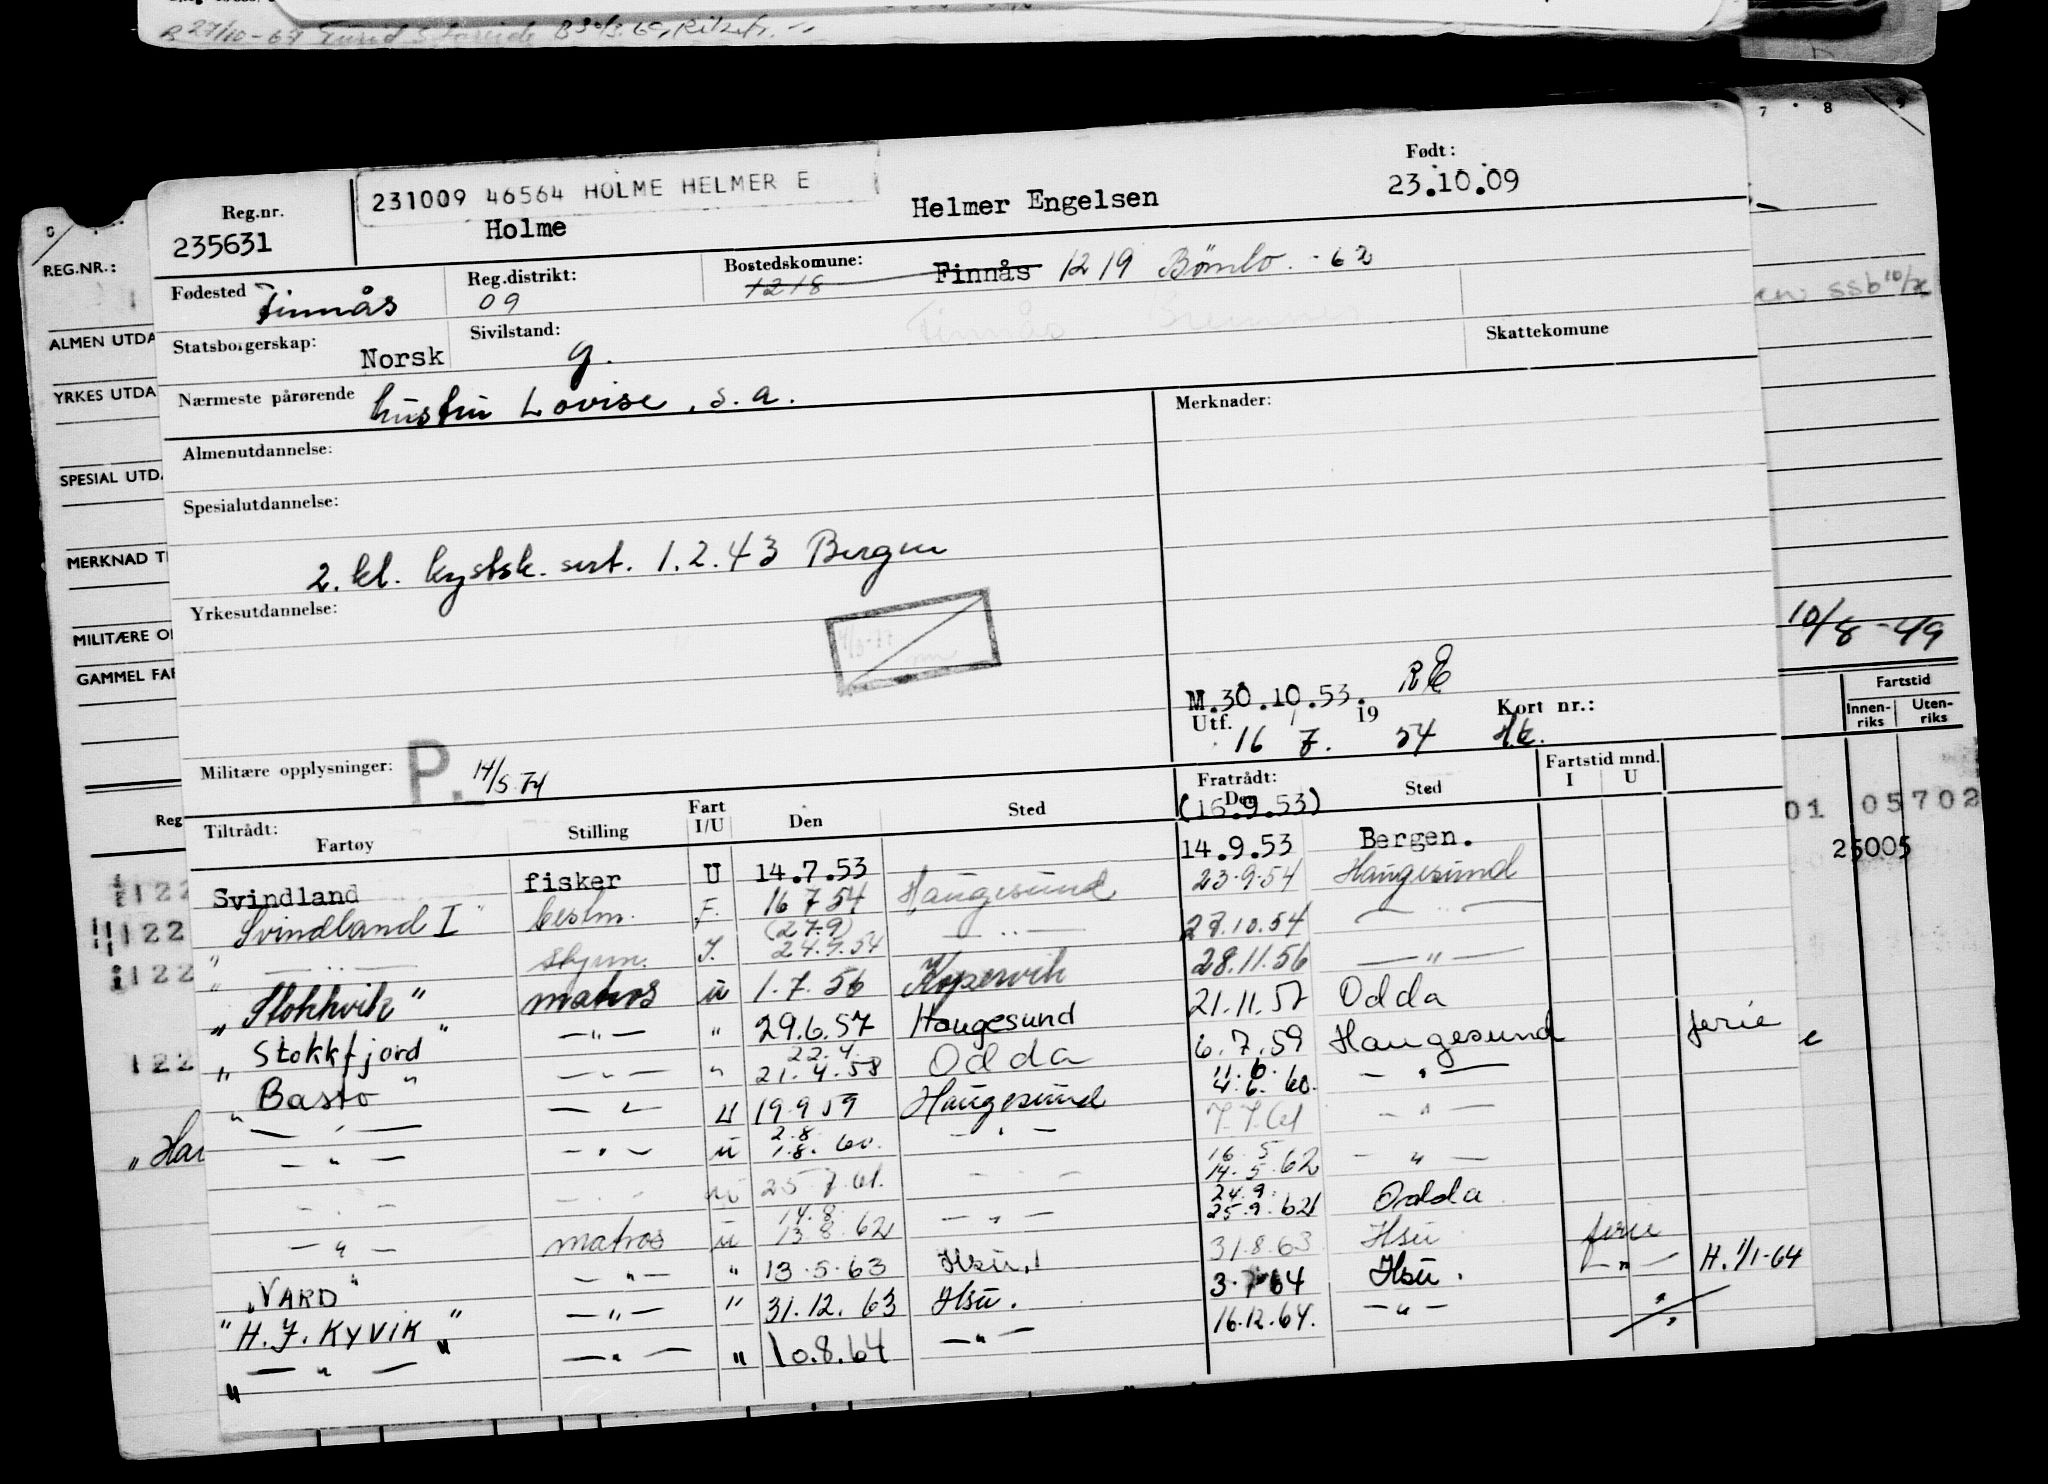 B 27/10-67
Reg.nr.
235631
231009 46564 HOLME HELMER E
Holme
Helmer Engelsen
Født:
23.10.09
7 . 8 9
REG.NR.:
Fødested
Finnås
Reg.distrikt:
09
Bostedskomune:
1218
Finnås 1219 Bömlo - 62
ssb 10/
ALMEN UTDA
Statsborgerskap:
Norsk
Sivilstand:
g.
Finnås Bremnes
Skattekomune
YRKES UTDA
Nærmeste pårørende
hustru Lovise, s.a.
Merknader:
Almenutdannelse:
SPESIAL UTDA
Spesialutdannelse:
2. kl. kystsk. sert. 1.2.43 Bergen
MERKNAD T
Yrkesutdannelse:
MILITÆRE O
10/8-49
GAMMEL FAR
M.30.10.53.
Utf. 19 Kort nr.:
16 7. 54 Hk.
Fartstid
Innen-riks Uten-riks
Militære opplysninger:
P. 14/5.74
Fratrådt:
Den Sted
(16.9.53)
Fartstid mnd.
I U
01 05702
25005
Reg
Tiltrådt:
Fartøy Stilling Fart I/U Den Sted
Svindland fisker U 14.7.53 14.9.53 Bergen.
"Svindland I" bestm. F. 16 7 54 Haugesund 23.9.54 Haugesund
" — " — skjem. F. (27.9) 24.9.54 — " — 28.10.54 — " —
"Stokkvik" matros u 1.7.56 Kopervik 28.11.56 — " —
"Stokkfjord" — " — " 29.6.57 Haugesund 21.11.57 Odda
"Basto" — " — " 22.4 21.4.58 Odda 6.7.59 Haugesund ferie
— " — — " — u 19.9.59 Haugesund 11.6 4.6.60. — " —
— " — — " — u 2.8 1.8.60. — " — 7.7.61 — " —
— " — — " — u 25.7.61. — " — 16.5 14.5.62 — " —
— " — matros u 14.8 13.8.62 — " — 24.9. 25.9.62 Odda
"VARD" — " — " 13.5.63 Hsund 31.8.63 Hsu ferie
"H.J. KYVIK" — " — " 31.12.63 Hsu. 3.7.64 Hsu. — " — H. 1/1-64
" — " — — " — " 10.8.64 — " — 16.12.64. — " —
122
122
122
122
"Har